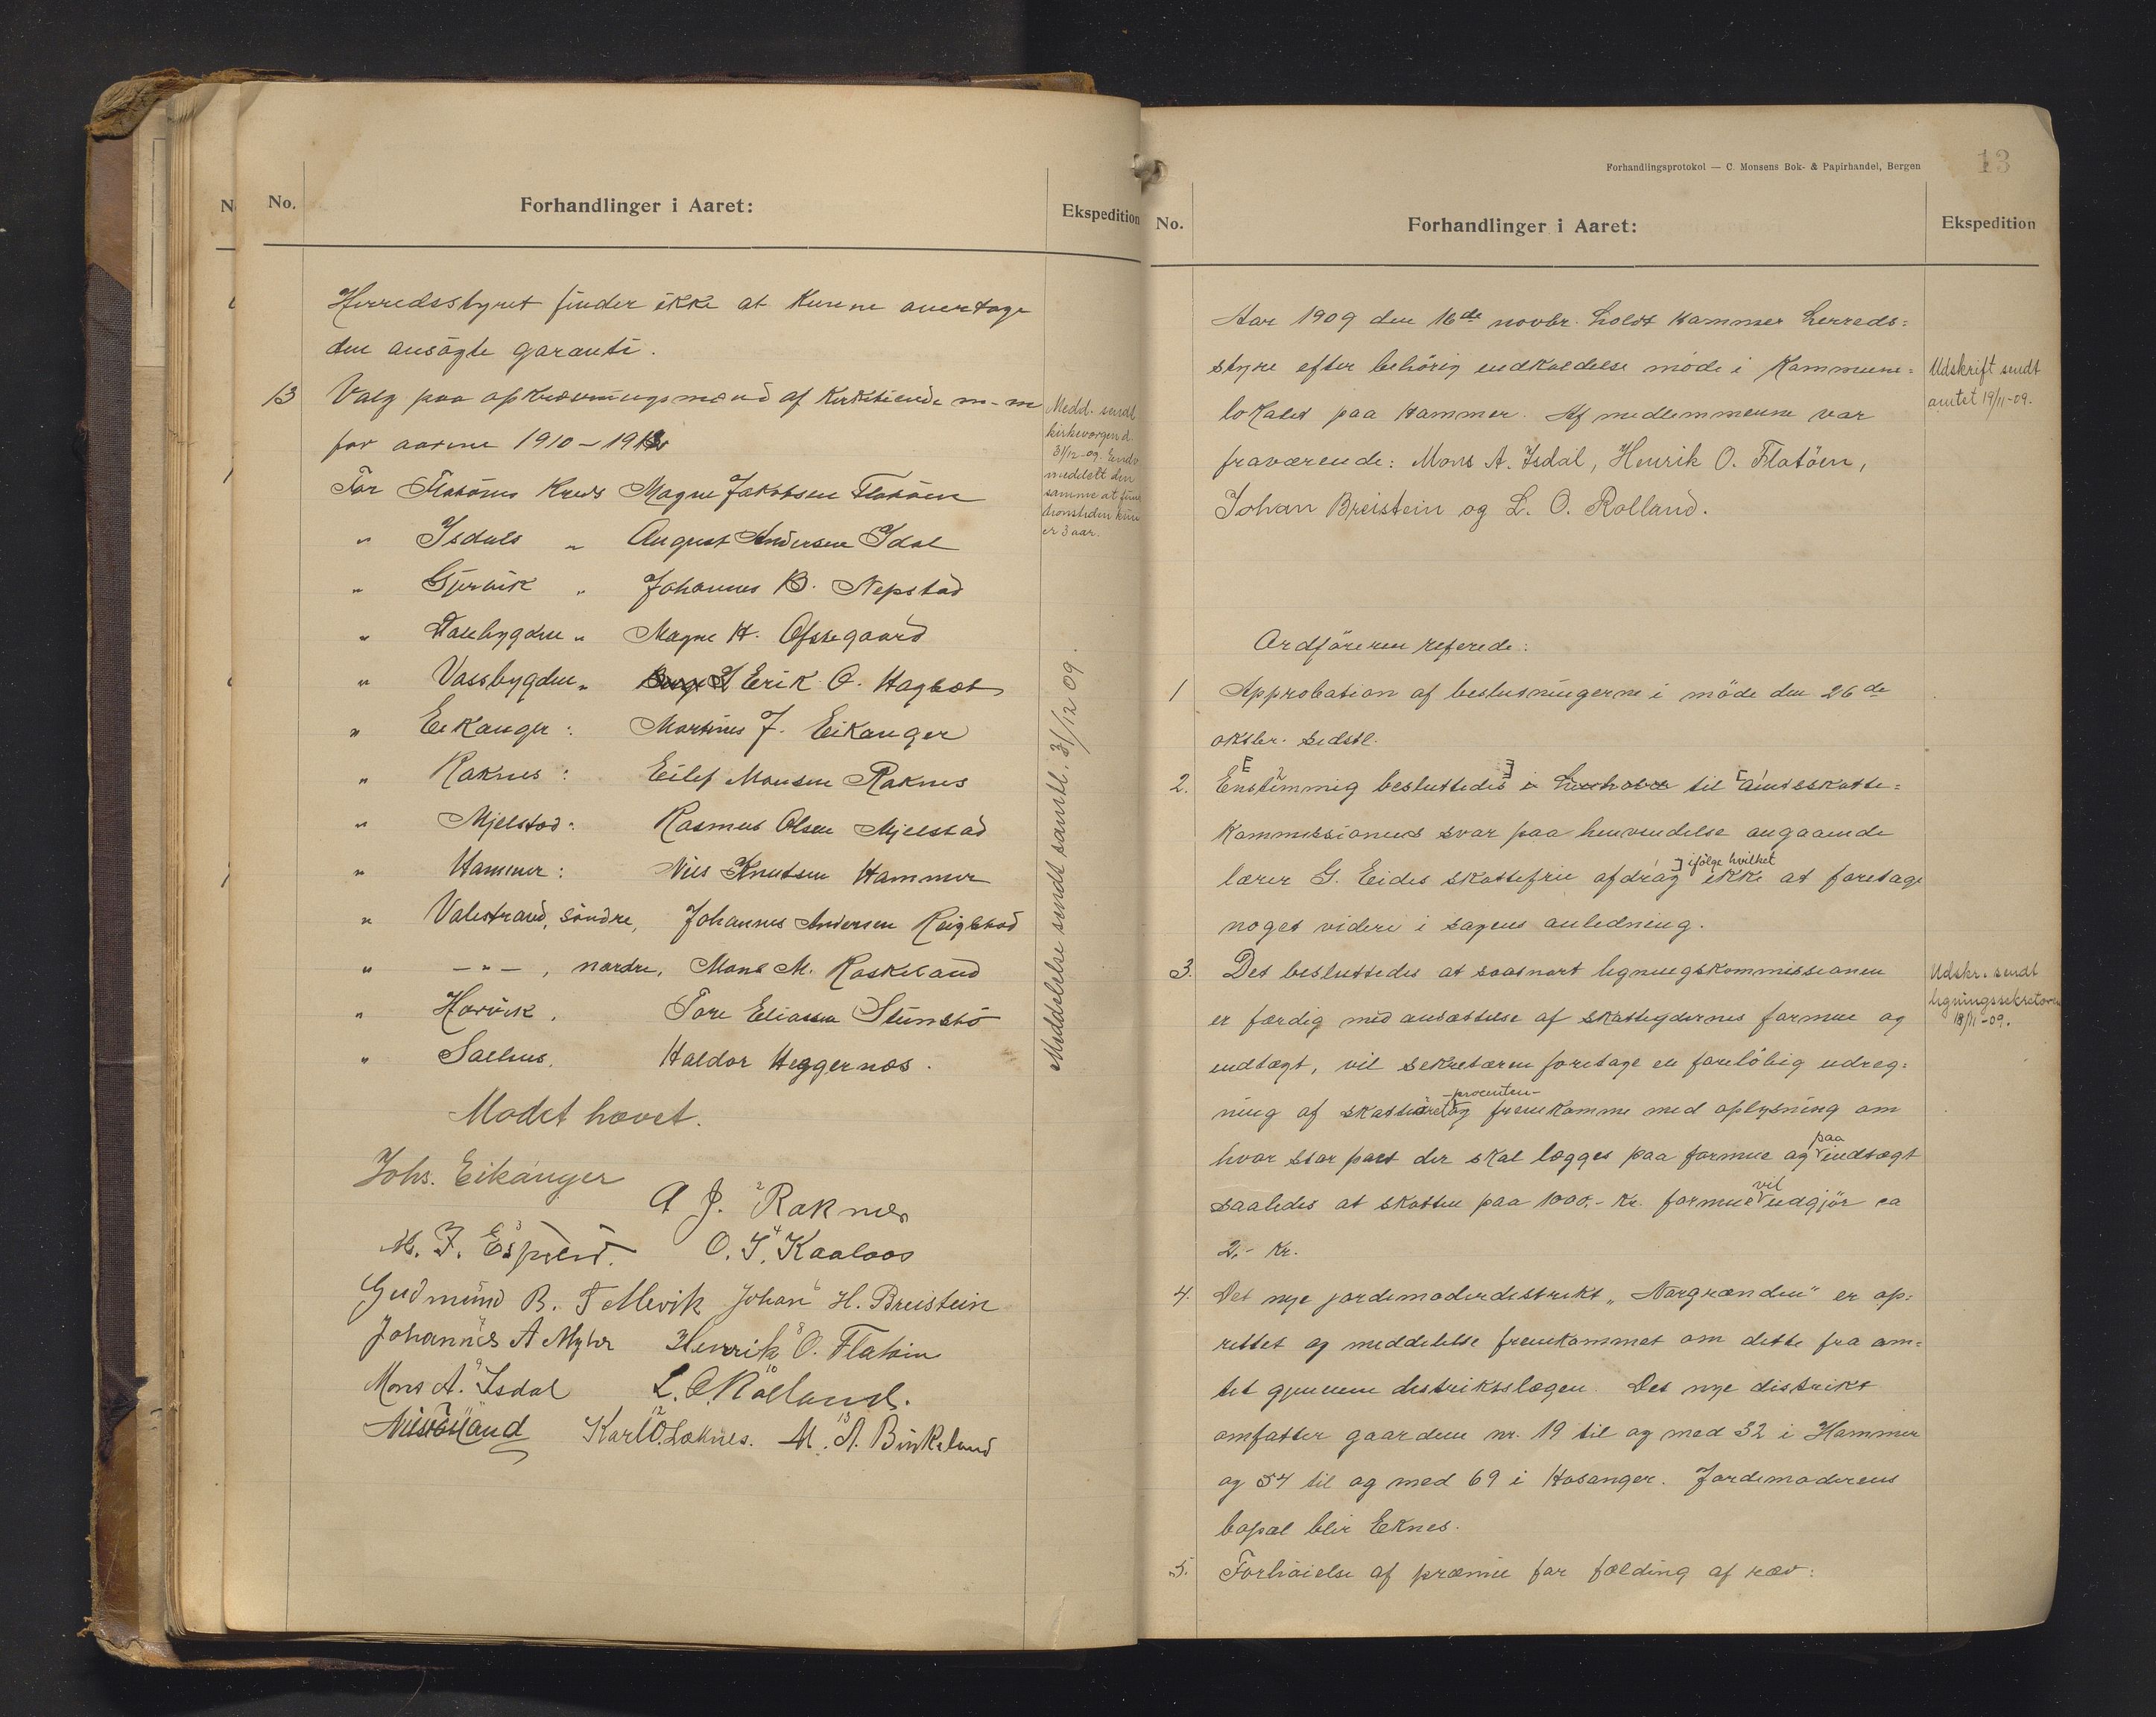 No.
Forhandlinger i Aaret:
Ekspedition
Herredsstyret finder ikke at kunne overtage
den ansøgte garanti.
13 Valg paa opkrævningsmænd af kirketiende m-m
for aarene 1910-1912
Medd. sendt
kirkevergen d.
31/12-09. Endv
meddelt den
samme at funk
tionstiden kun
er 3 aar.
For Flatöens Kreds Magne Jakobsen Flatöen
" Isdals " August Andersen Isdal
" Gjervik " Johannes B. Nepstad
" Dalebygden " Magne H. Ofstegaard
" Vassbygden " Erik O. Hagbøt
" Eikanger : Martines J. Eikanger
" Raknes : Eilef Monsen Raknes
" Mjelstad : Rasmus Olsen Mjelstad
" Hammer : Nils Knutsen Hammer
" Valestrand, söndre, Johannes Andersen Reigstad
" - " - , nordre, Mons M. Raskeland
" Horvik, Tore Eliassen Steinstö
" Salhus, Haldor Heggernæs.
Meddelelse sendt samtl. 31/12 09.
Mødet hævet.
Johs. Eikanger
A J. Raknes
M. J. Espelid.
O. J. Kaalaas
Gudmund B. Tellevik Johan H. Breistein
Johannes A Myhr Henrik O. Flatöin
Mons A. Isdal L. O. Rolland.
Karl O. Loknes. M. A. Birkeland
Forhandlingsprotokol — C. Monsens Bok- & Papirhandel, Bergen
13
No.
Forhandlinger i Aaret:
Ekspedition
Aar 1909 den 16de novbr. holdt Hammer herreds=
styre efter behörig indkaldelse möde i Kommune=
lokalet paa Hammer. Af medlemmerne var
fraværende: Mons A. Isdal, Henrik O. Flatöen,
Johan Breistein og L. O. Rolland.
Udskrift sendt
amtet 19/11-09.
Ordföreren referede:
1 Approbation af beslutningerne i möde den 26de
oktbr. sidstl.
2. [Enstemmig besluttedes] i henhold til [amtsskatte=
kommissionens svar paa henvendelse angaaende
lærer G. Eides skattefrie afdrag] ifølge hvilket ikke at foretage
noget videre i sagens anledning.
3. Det besluttedes at saasnart ligningskommissionen
er færdig med ansættelse af skatteydernes formue og
indtægt, vil sekretæren foretage en foreløbig udreg=
ning af skatte-procenten- og fremkomme med oplysning om
hvor stor part der skal lægges paa formue og paa indtægt
saaledes at skatten paa 1000,- Kr. formue vil udgjör ca
2,- Kr.
Udskr. sendt
ligningssekretæren
18/11-09.
4. Det nye jordemoderdistrikt "Norgrænden" er op=
rettet og meddelelse fremkommet om dette fra am=
tet gjennem distriktslægen. Det nye distrikt
omfatter gaardene nr. 19 til og med 32 i Hammer
og 54 til og med 69 i Hosanger. Jordemoderens
bopæl blir Eknes.
5. Forhöielse af præmie for fælding af ræv: